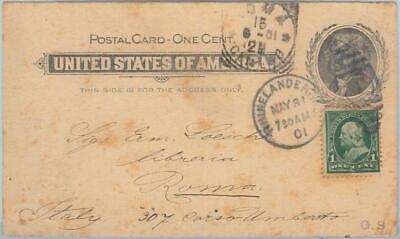 POSTAL CARD - ONE CENT.
UNITED STATES OF AMERICA.
THIS SIDE IS FOR THE ADDRESS ONLY.
15
6 - 01
RHINELANDER
MAY 31
7 30 AM
01
1 ONE CENT 1
Sig. Erm. Loescher
libreria
Roma.
Italy 307 Corso Umberto
G.S